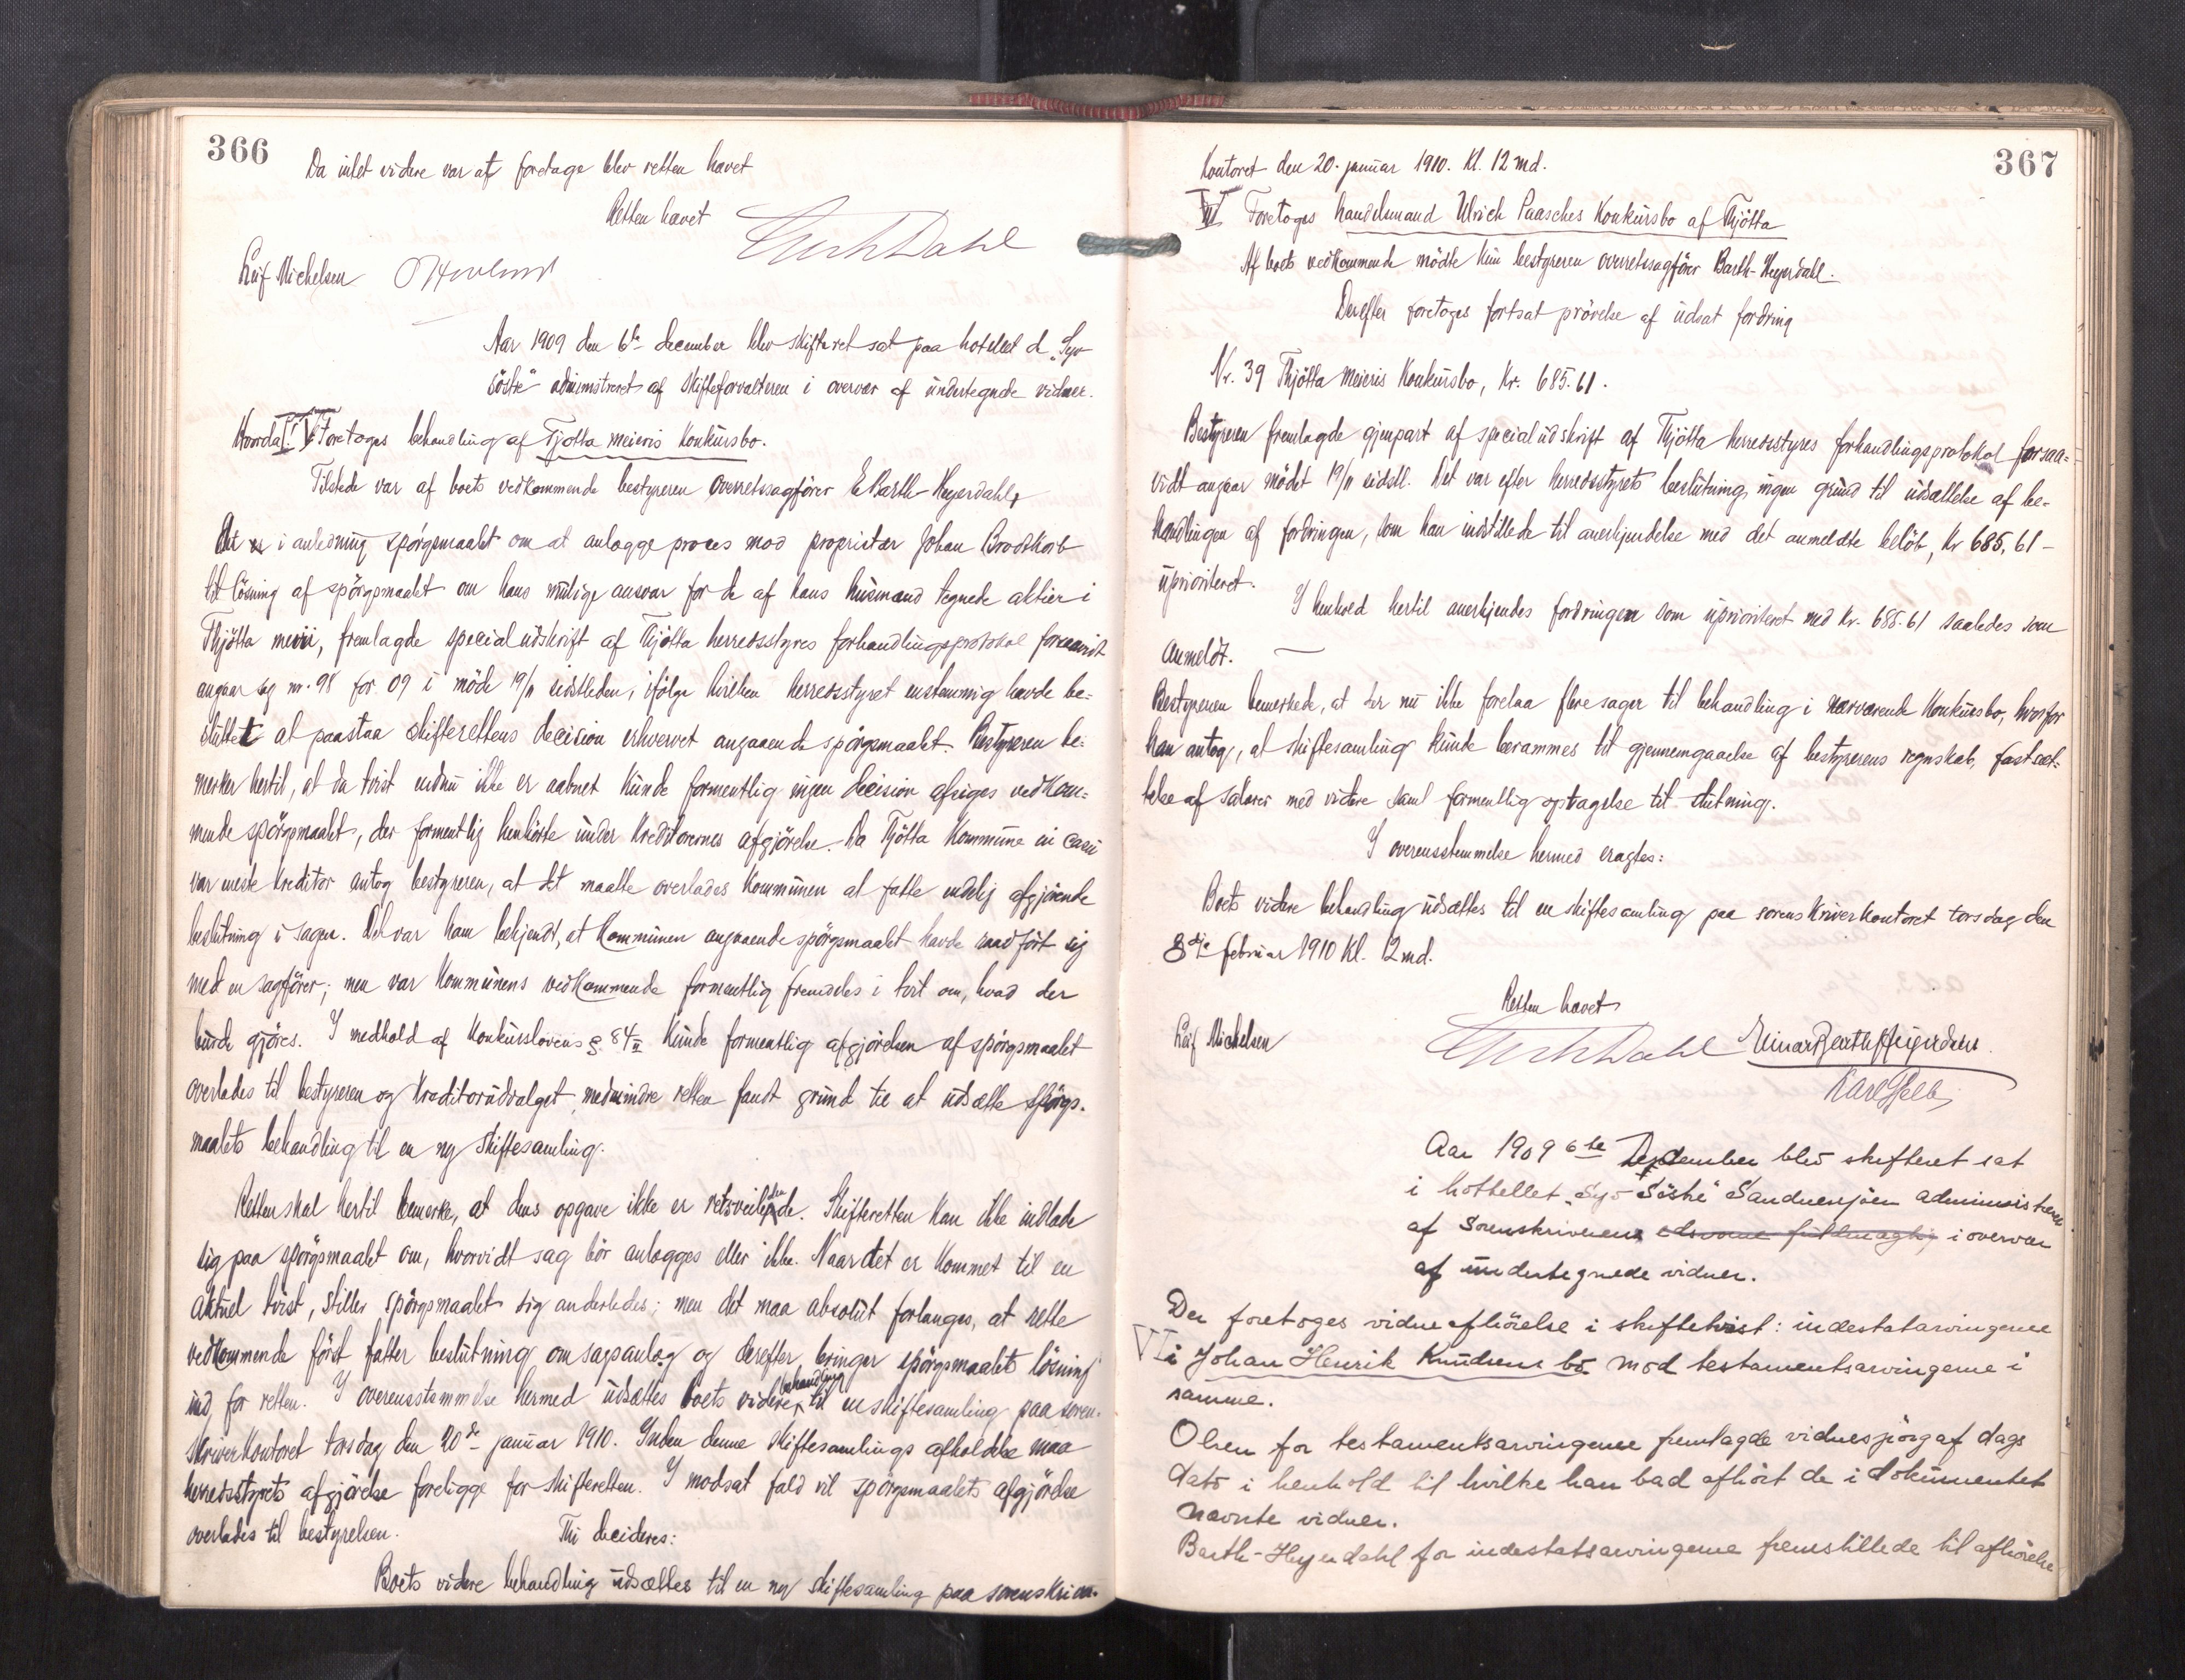 366
Da intet videre var at foretage blev retten hævet
Retten hævet
Leif Michelsen
Aar 1909 den 6te december blev skifteret sat paa hotellet de „Syv
söstre" administreret af skifteforvalteren i overvær af undertegnede vidner.
Hvorda: V Foretoges behandling af Tjøtta meieris Konkursbo.
Tilstede var af boets vedkommende bestyreren overretssagfører E Barth-Heyerdahl,
i anledning spørgsmaalet om at anlægge proces mod proprietær Johan Brodtkorb
til løsning af spørgsmaalet om hans mulige ansvar for de af hans husmænd tegnede aktier i
Thjøtta meieri, fremlagde specialudskrift af Thjøtta herredsstyres forhandlingsprotokol forsaavidt
angaar sag nr. 98 for 09 i møde 19/11 sidstleden, ifølge hvilken herredsstyret enstemmig havde be-
sluttet at paastaa skifterettens decision erhvervet angaaende spørgsmaalet. Bestyreren be-
merker hertil, at da tvist endnu ikke er aabnet kunde formentlig ingen decision afsiges vedkom-
mende spørgsmaalet, der formentlig henhørte under Kreditorernes afgjørelse. Da Tjøtta Kommune in casu
var meste Kreditor antog bestyreren, at det maatte overlades Kommunen at fatte endelig afgjørende
beslutning i sagen. Det var ham bekjendt, at Kommunen angaaende spørgsmaalet havde raadført sig
med en sagfører; men var Kommunens vedkommende formentlig fremdeles i tvil om, hvad der
burde gjøres. I medhold af Konkurslovens § 84 II Kunde formentlig afgjørelsen af spørgsmaalet
overlades til bestyreren og Kreditorudvalget, medmindre retten fandt grund til at udsætte spørgs-
maalets behandling til en ny skiftesamling.
Retten skal hertil bemerke, at dens opgave ikke er retsveiledende. Skifteretten kan ikke indlade
sig paa spørgsmaalet om, hvorvidt sag bør anlægges eller ikke. Naar det er kommet til en
aktuel tvist, stiller spørgsmaalet sig anderledes; men det maa absolut forlanges, at rette
vedkommende først fatter beslutning om sagsanlæg og derefter bringer spørgsmaalets løsning
ind for retten. I overensstemmelse hermed udsættes boets videre behandling til en skiftesamling paa soren-
skriverkontoret torsdag den 20de januar 1910. Inden denne skiftesamlings afholdelse maa
herredsstyrets afgjørelse foreligge for skifteretten. I modsat fald vil spørgsmaalets afgjørelse
overlades til bestyrelsen. Thi decideres:
Boets videre behandling udsættes til en ny skiftesamling paa sorenskriver-
367
Kontoret den 20. januar 1910. Kl. 12 md.
Foretoges handelsmand Ulrich Paasches Konkursbo af Thjøtta
Af boets vedkommende mødte kun bestyreren overretssagfører Barth-Heyerdahl.
Derefter foretoges fortsat prøvelse af udsat fordring
Nr. 39 Thjøtta Meieris Konkursbo, Kr. 685.61.
Bestyreren fremlagde gjenpart af specialudskrift af Thjøtta herredsstyres forhandlingsprotokol forsaa-
vidt angaar mødet 19/11 sidstl. Det var efter herredsstyrets beslutning ingen grund til udsættelse af be-
handlingen af fordringen, som han indstillede til anerkjendelse med det anmeldte beløb, Kr 685,61 -
uprioriteret.
I henhold hertil anerkjendes fordringen som uprioriteret med Kr. 685.61 saaledes som
anmeldt.
Bestyreren bemerkede, at der nu ikke forelaa flere sager til behandling i nærværende Konkursbo, hvorfor
han antog, at skiftesamling kunde berammes til gjennemgaaelse af bestyrerens regnskab, fastsæt-
telse af salærer med videre samt formentlig optagelse til slutning.
I overensstemmelse hermed eragtes:
Boets videre behandling udsættes til en skiftesamling paa sorenskriverkontoret torsdag den
3die februar 1910 Kl. 12 md.
Retten hævet
Leif Michelsen
Einar Barth Heyerdahl.
Aar 1909 6te December blev skifteret sat
i hottellet „Syv Söstre" Sandnessjøen administreret
af Sorenskriveren edsvorne fuldmægtig i overvær
af undertegnede vidner.
Der foretoges vidneafhörelse i skiftetvist: indestatarvingerne
VI i Johan Henrik Knudsens bo mod testamentsarvingerne i
samme.
Olsen for testamentsarvingerne fremlagde vidnespörg af dags
dato i henhold til hvilke han bad afhört de i dokumentet
nævnte vidner.
Barth-Heyerdahl for indestatsarvingerne fremstillede til afhörelse